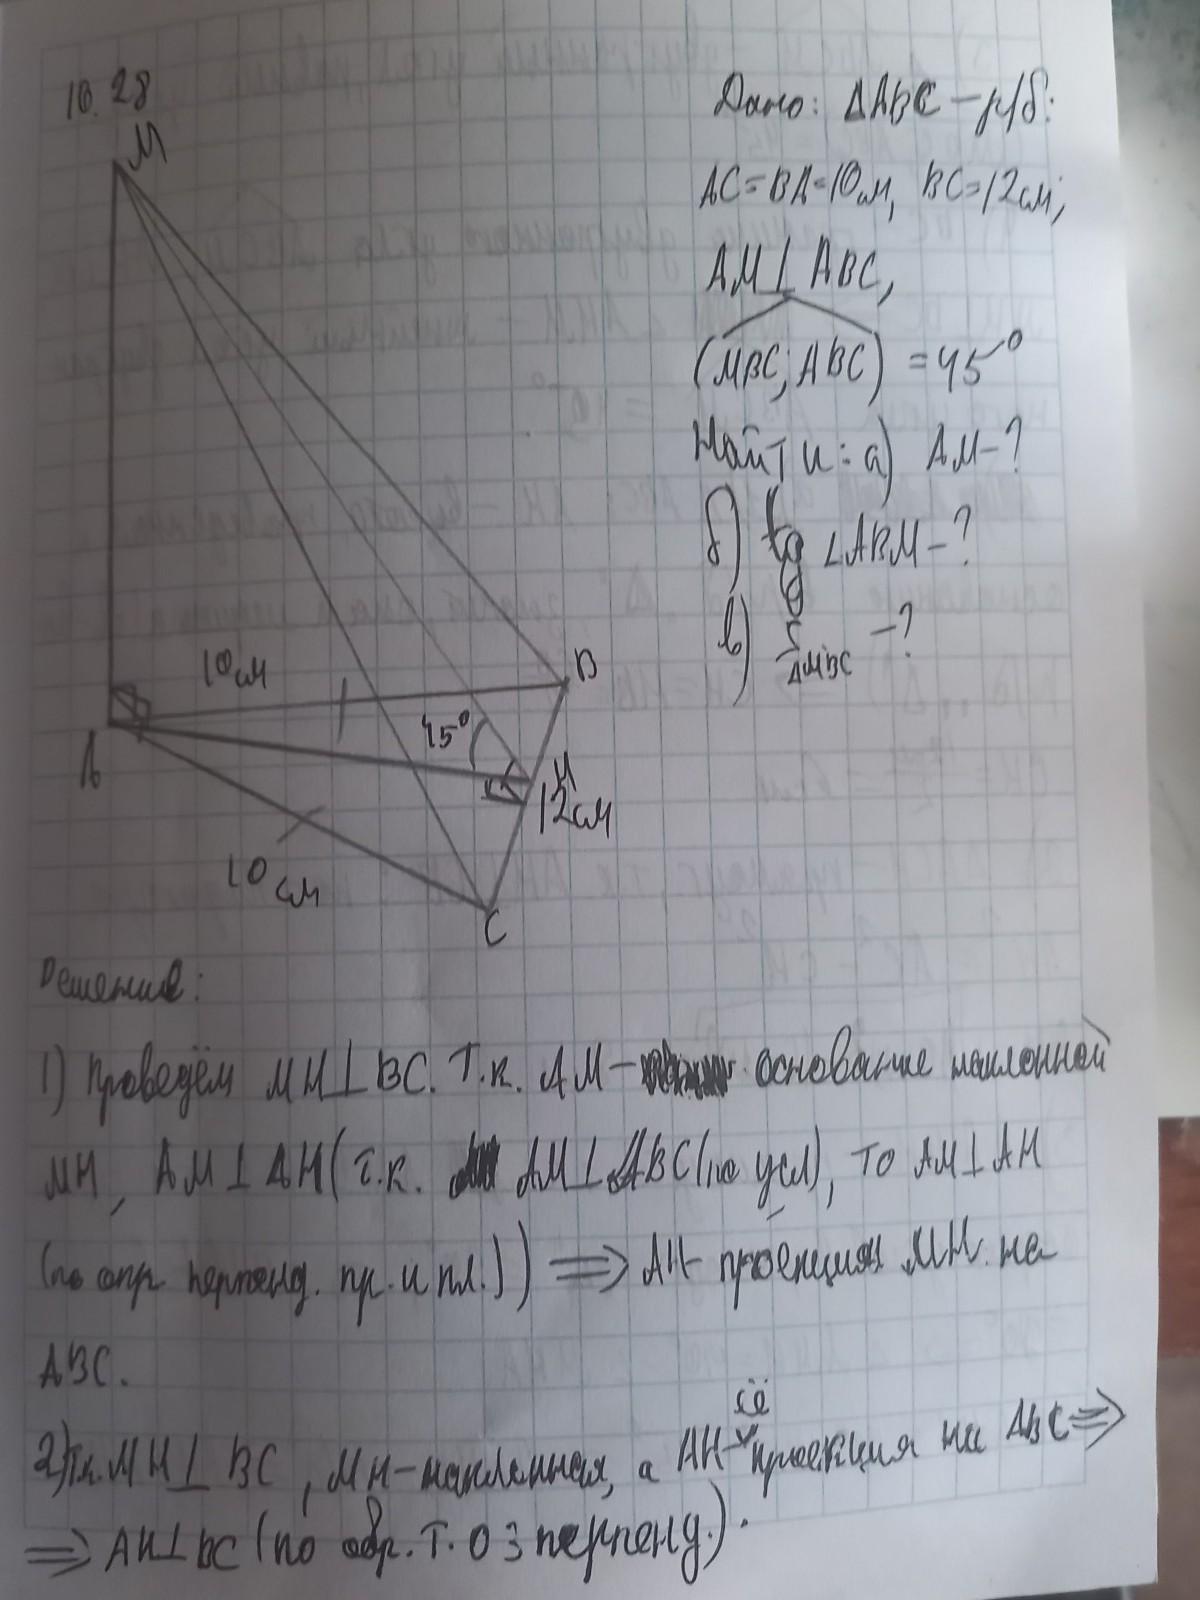 10.28
Дано: ΔABC – р/б:
AC=BA=10см, BC=12см;
AM⊥ABC,
(MBC; ABC) = 45°
Найти: а) AM-?
б) tg ∠ABM-?
в) S ΔMBC -?
M
10см
B
A
45°
H
12см
10 см
C
Решение:
1) Проведём MH⊥BC. Т.к. AM- основание наклонной
MH, AM⊥AH (т.к. AM⊥ABC (по усл), то AM⊥AH
(по опр. перпенд. пр. и пл.)) ⟹ AH- проекция MH на
ABC.
2) Т.к. MH⊥BC, MH-наклонная, а AH- её проекция на ABC ⟹
⟹ AH⊥BC (по обр. т. о 3 перпенд.).